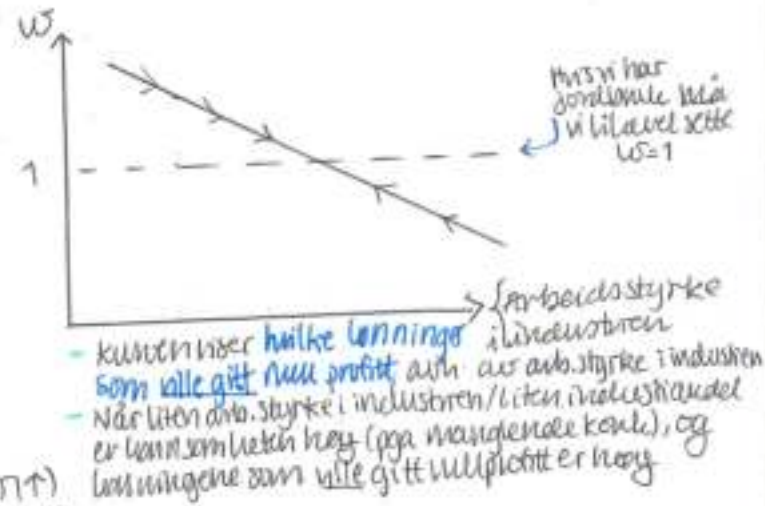 w
Hvis vi har
jordbruk må
vi likevel sette
w=1
1
Arbeidsstyrke
i industrien
- kurven viser hvilke lønninger
som ville gitt null profitt avh. av arb.styrke i industrien
- Når liten arb.styrke i industrien/liten industriandel
er lønnsomheten høy (pga manglende konk.), og
lønningene som ville gitt nullprofitt er høy
n↑)